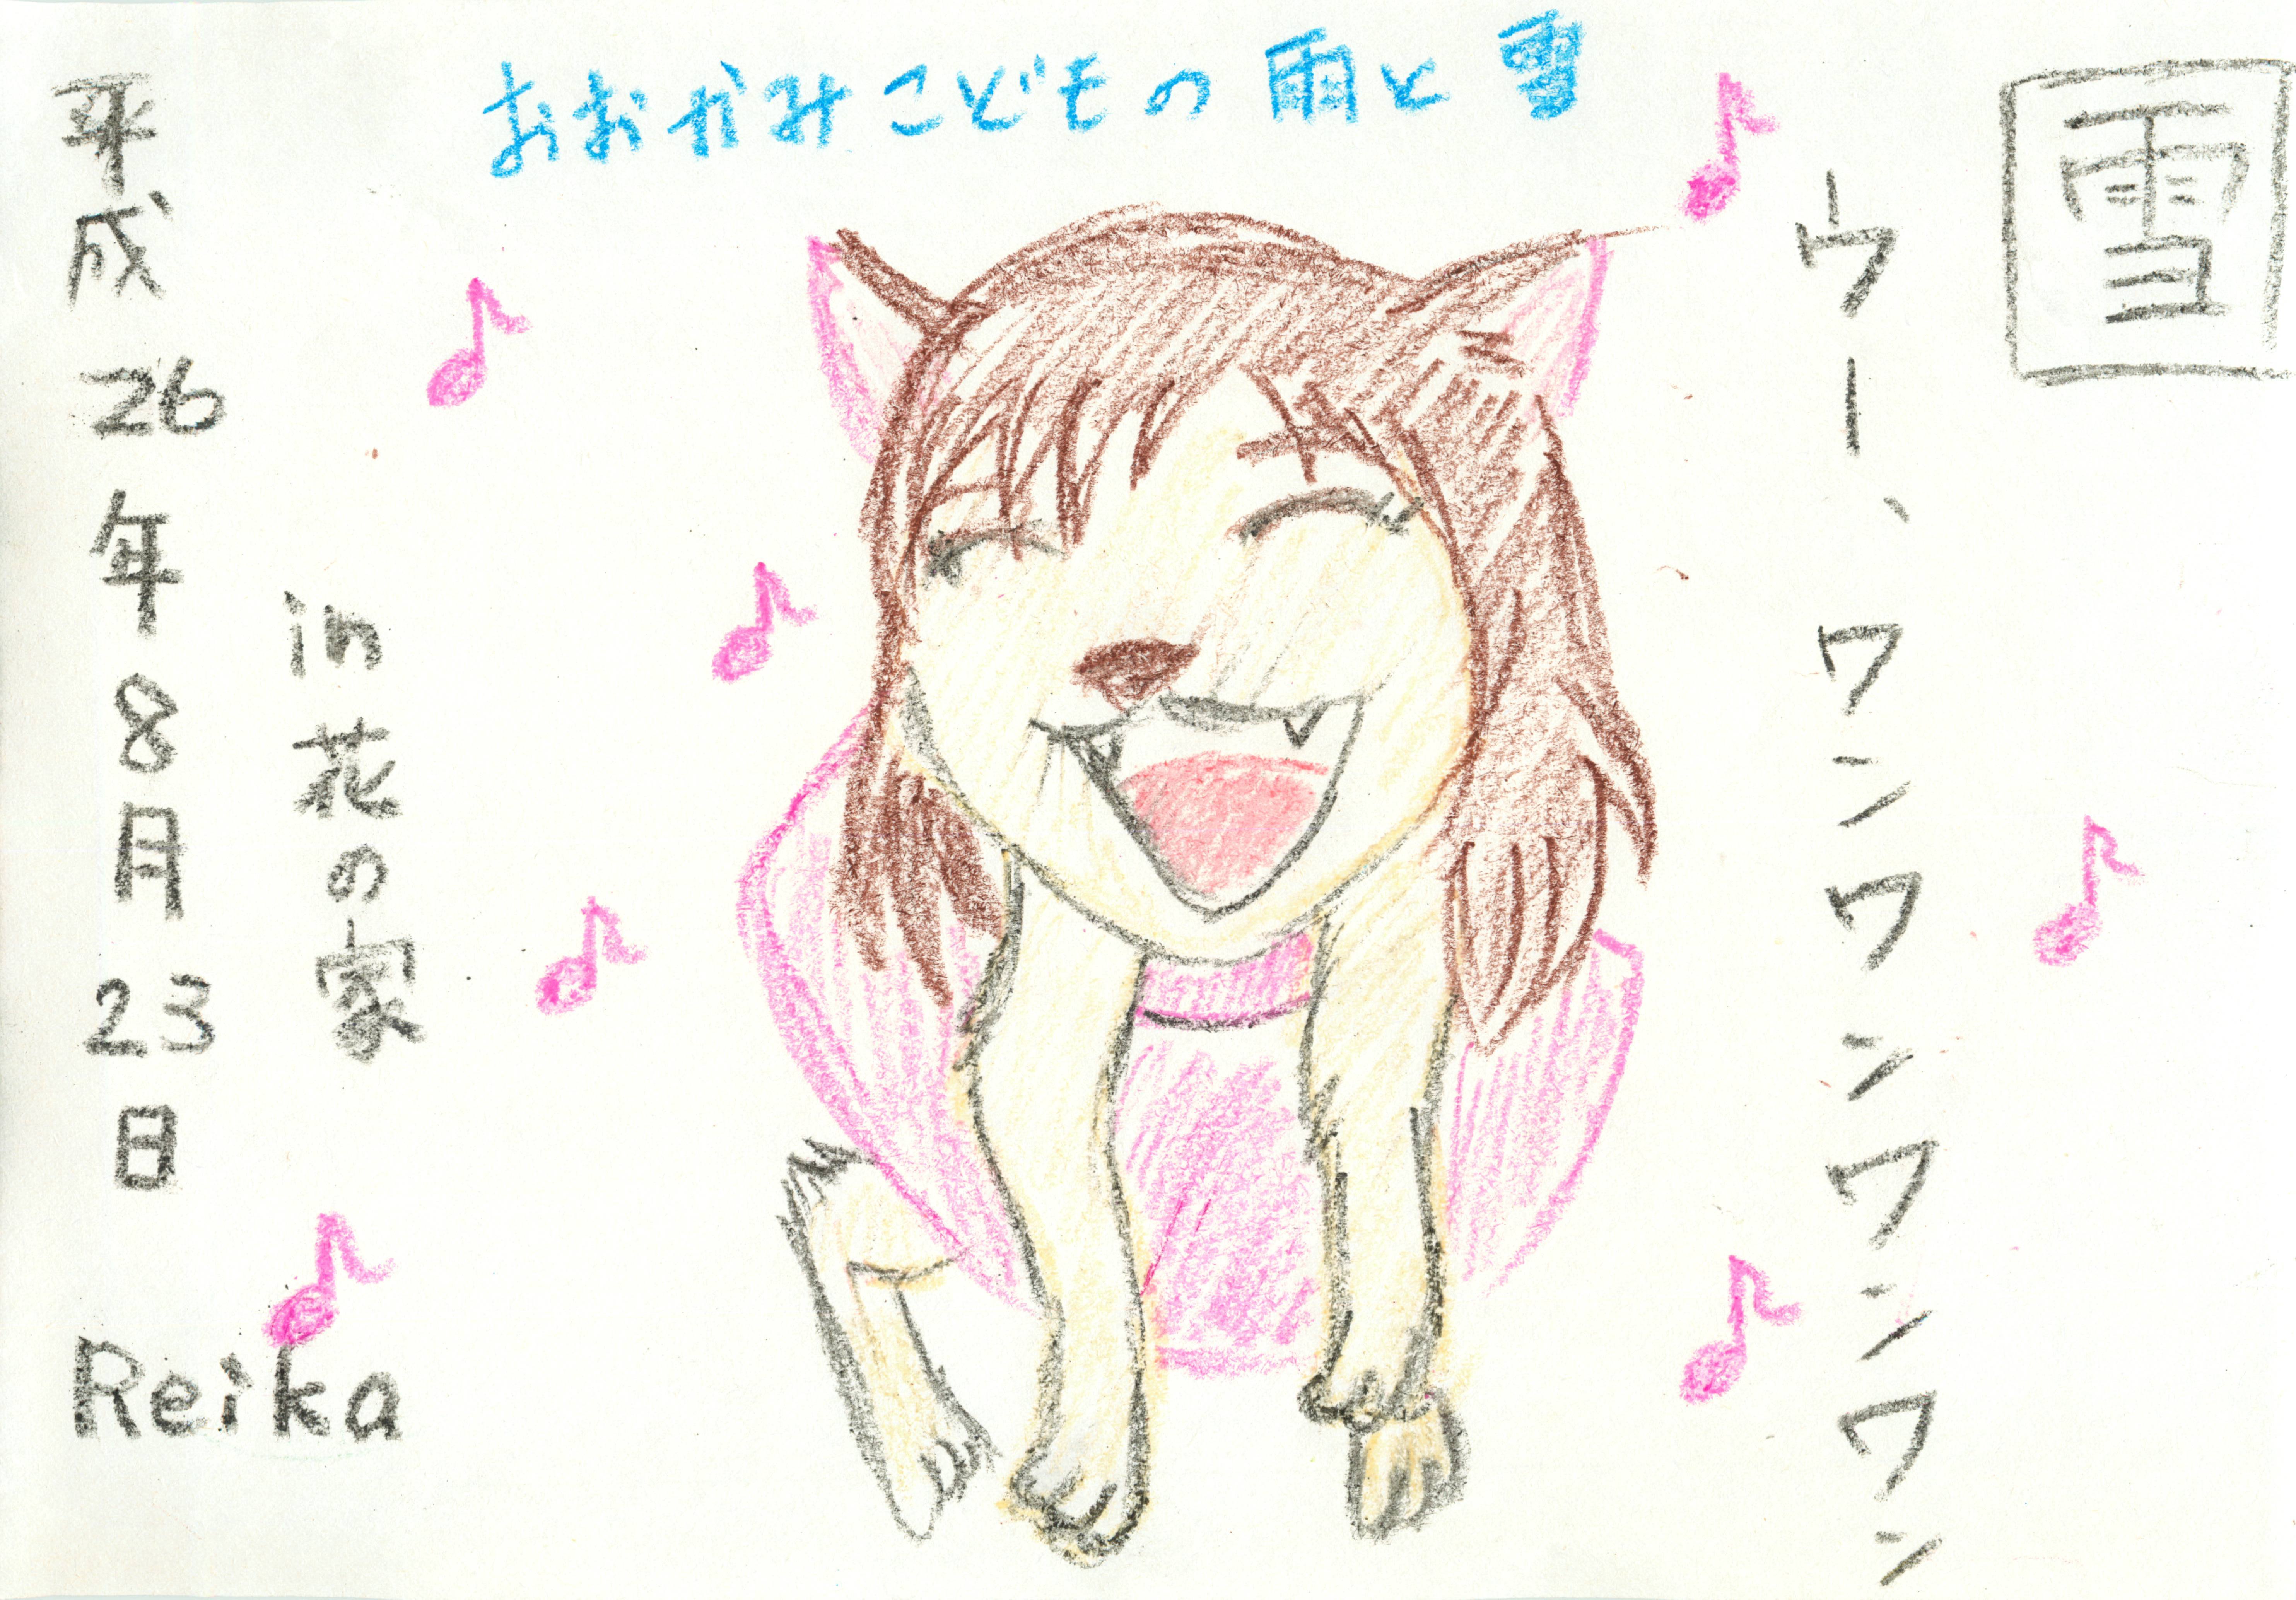 おおかみこどもの雨と雪
雪
ウー、ワンワンワンワン
in花の家
平成26年8月23日
Reika